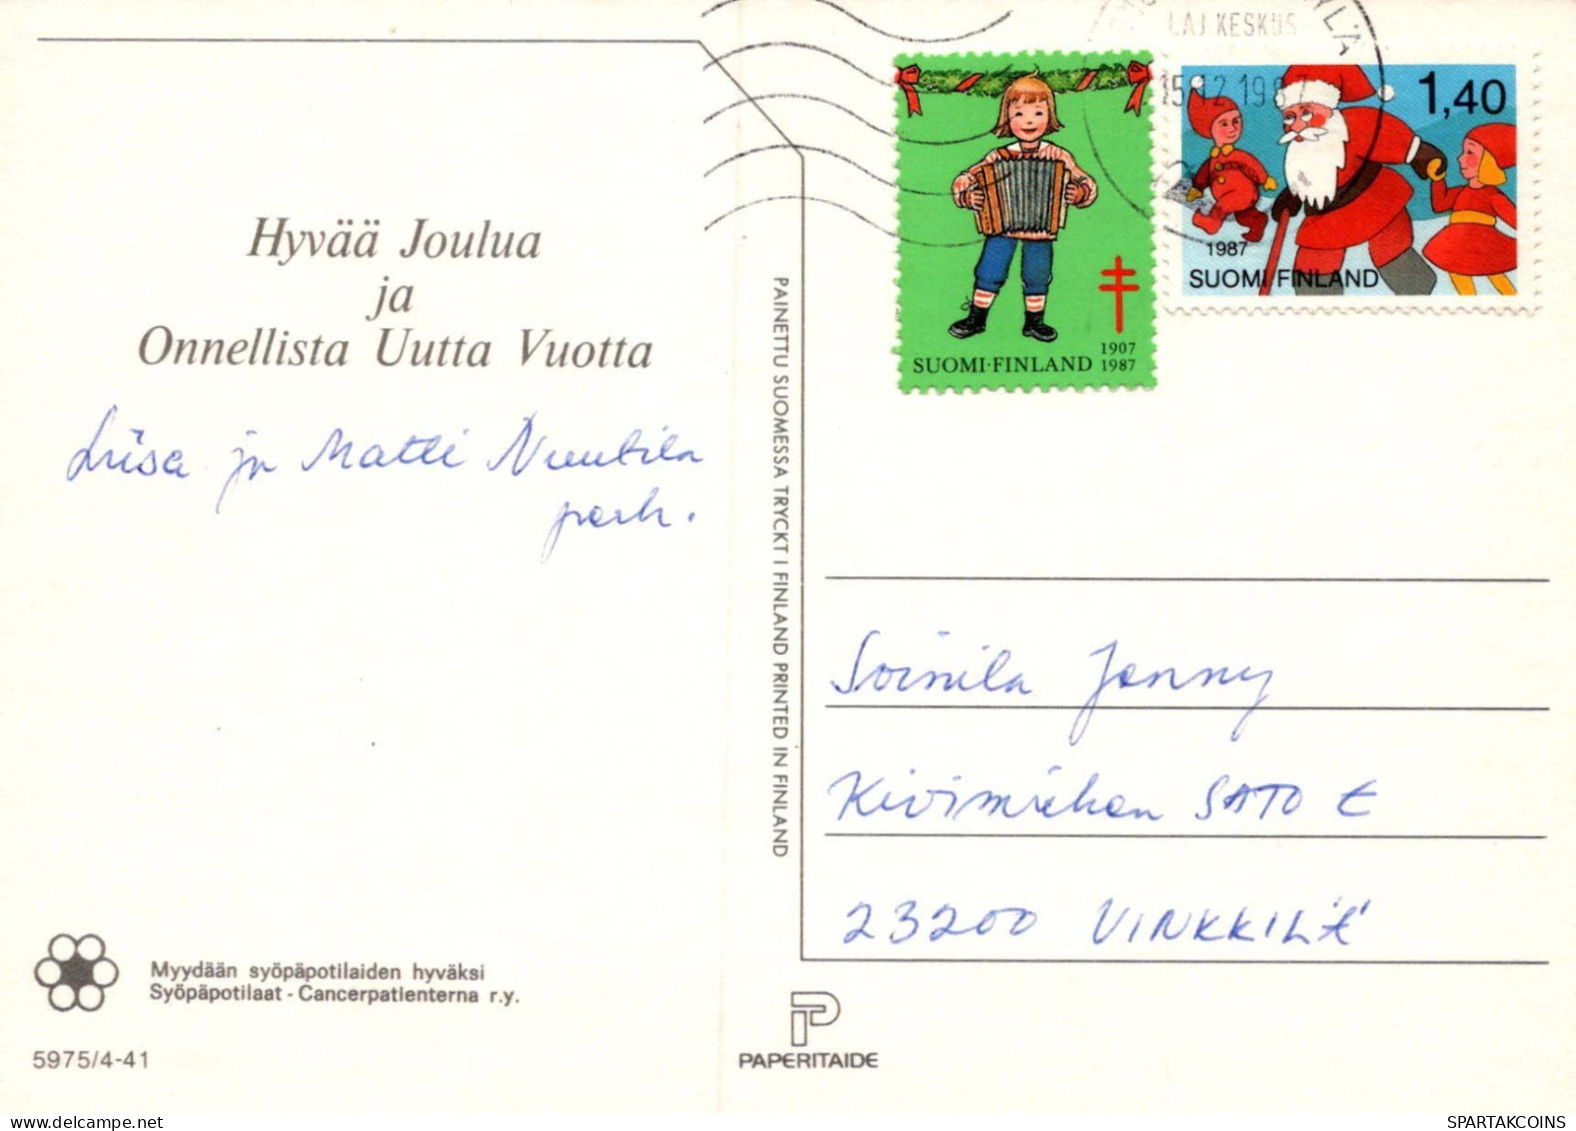 Hyvää Joulua
ja
Onnellista Uutta Vuotta
Liisa ja Matti Nuutila
perh.
Myydään syöpäpotilaiden hyväksi
Syöpäpotilaat - Cancerpatienterna r.y.
5975/4-41
PAINETTU SUOMESSA TRYCKT I FINLAND PRINTED IN FINLAND
LAJ KESKUS
15.12.1987
SUOMI·FINLAND
1907
1987
1,40
1987
SUOMI FINLAND
Soinila Jenny
Kivimäehen SATO E
23200 VINKKILÄ
PAPERITAIDE
SPARTAKCOINS